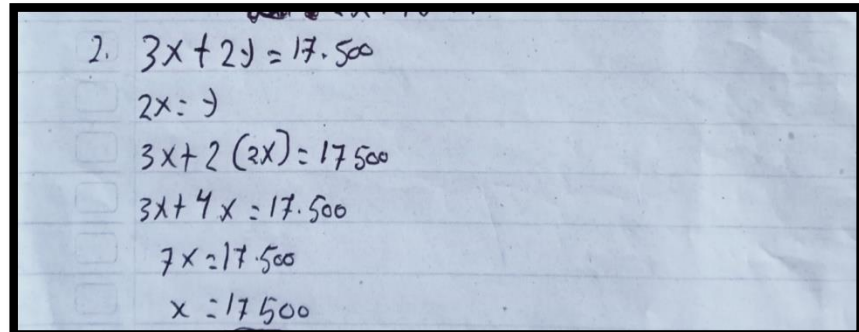 2. 3x + 2y = 17.500
2x = y
3x + 2 (2x) = 17500
3x + 4x = 17.500
7x = 17.500
x = 17500